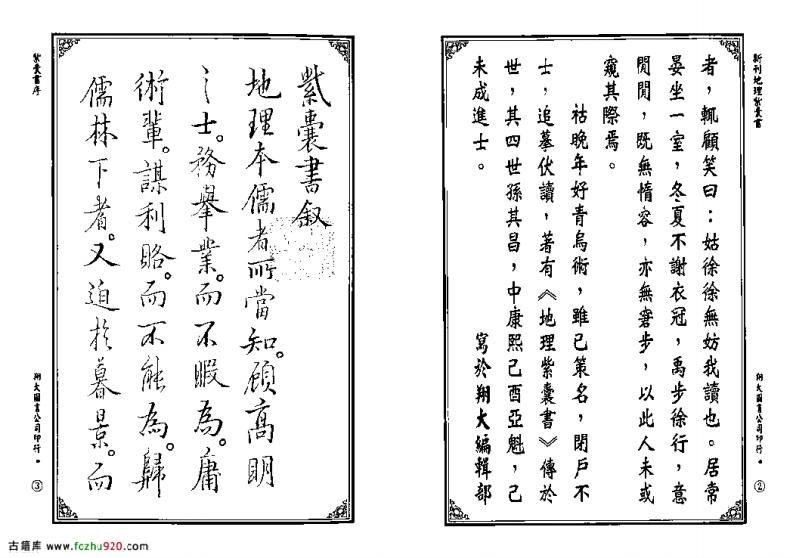 新刊地理紫囊書
者，輒顧笑曰：姑徐徐無妨我讀也。居常
晏坐一室，冬夏不謝衣冠，禹步徐行，意
閒閒，既無惰容，亦無窘步，以此人未或
窺其際焉。
祜晚年好青烏術，雖已策名，閉戶不
士，追摹伏讀，著有《地理紫囊書》傳於
世，其四世孫其昌，中康熙己酉亞魁，己
未成進士。
寫於翔大編輯部
翔大圖書公司印行。
②
紫囊書叙
地理本儒者所當知。顧高明
之士。務舉業。而不暇為。庸
術輩。謀利賂。而不能為。歸
儒林下者。又迫於暮景。而
紫囊書序
翔大圖書公司印行。
③
古籍库 www.fczhu920.com